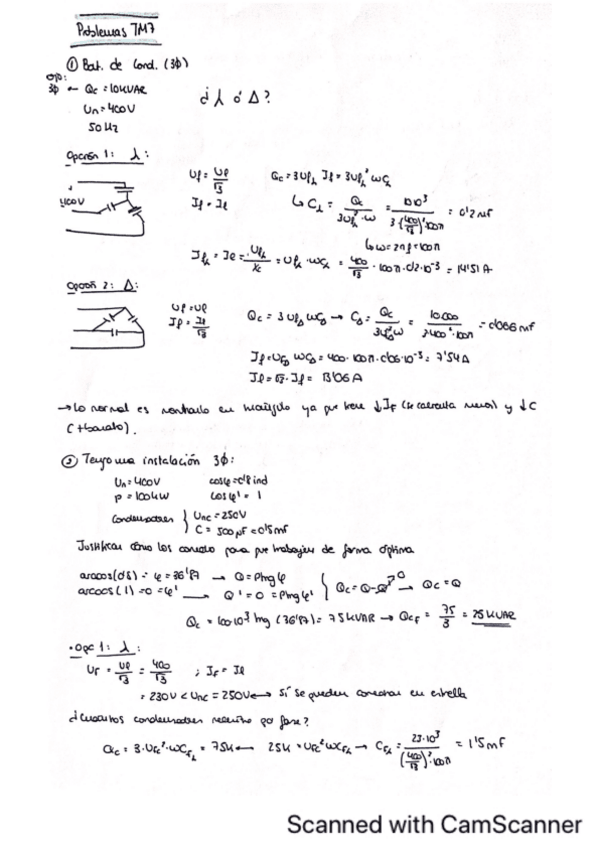 Problemas TM7
① Bat. de Cond. (3Φ)
3Φ ← Qc = 10 kVAR
Un = 400V
50 Hz
¿ ⅄ ó Δ?
Opción 1: ⅄:
400V
Uf = Ul/√3
If = Il
Qc = 3 Uf⅄ If = 3Uf⅄² ωC⅄
↳ C⅄ = Qc/(3Uf⅄²·ω) = 10·10³/(3(400/√3)²·100π) = 0'2 mF
↳ ω = 2πf = 100π
If⅄ = Il = Uf⅄/Xc = Uf⅄·ωC⅄ = 400/√3 · 100π·0'2·10⁻³ = 14'51 A
Opción 2: Δ:
Uf = Ul
If = Il/√3
Qc = 3 UfΔ² ωCΔ → CΔ = Qc/(3UfΔ²ω) = 10.000/(3·400²·100π) = 0'066 mF
If = UfΔ ωCΔ = 400·100π·0'06·10⁻³ = 7'54 A
Il = √3·If = 13'06 A
→ Lo normal es montarlo en triángulo ya que tiene ↓If (se calienta menos) y ↓C
(+barato).
② Tengo una instalación 3Φ:
Un = 400V cosφ = 0'8 ind
P = 100kW cosφ' = 1
Condensadores { Unc = 250V
C = 500 µF = 0'5 mF
Justificar cómo los conecto para que trabajen de forma óptima
arcos(0'8) = φ = 36'87 → Q = P·tgφ
arcos(1) = 0 = φ' → Q' = 0 = P·tgφ' } Qc = Q - Q'⁰ → Qc = Q
Qc = 100·10³ tg(36'87) = 75 kVAR → Qcf = 75/3 = 25 kVAR
• Opc 1: ⅄:
Uf = Ul/√3 = 400/√3 ; If = Il
= 230V < Unc = 250V ↔ Sí se pueden conectar en estrella
¿Cuántos condensadores necesito por fase?
Qc = 3·Ufc²·ωCf⅄ = 75k ← 25k = Ufc² ωCf⅄ → Cf⅄ = 25·10³/((400/√3)²·100π) = 1'5 mF
Scanned with CamScanner